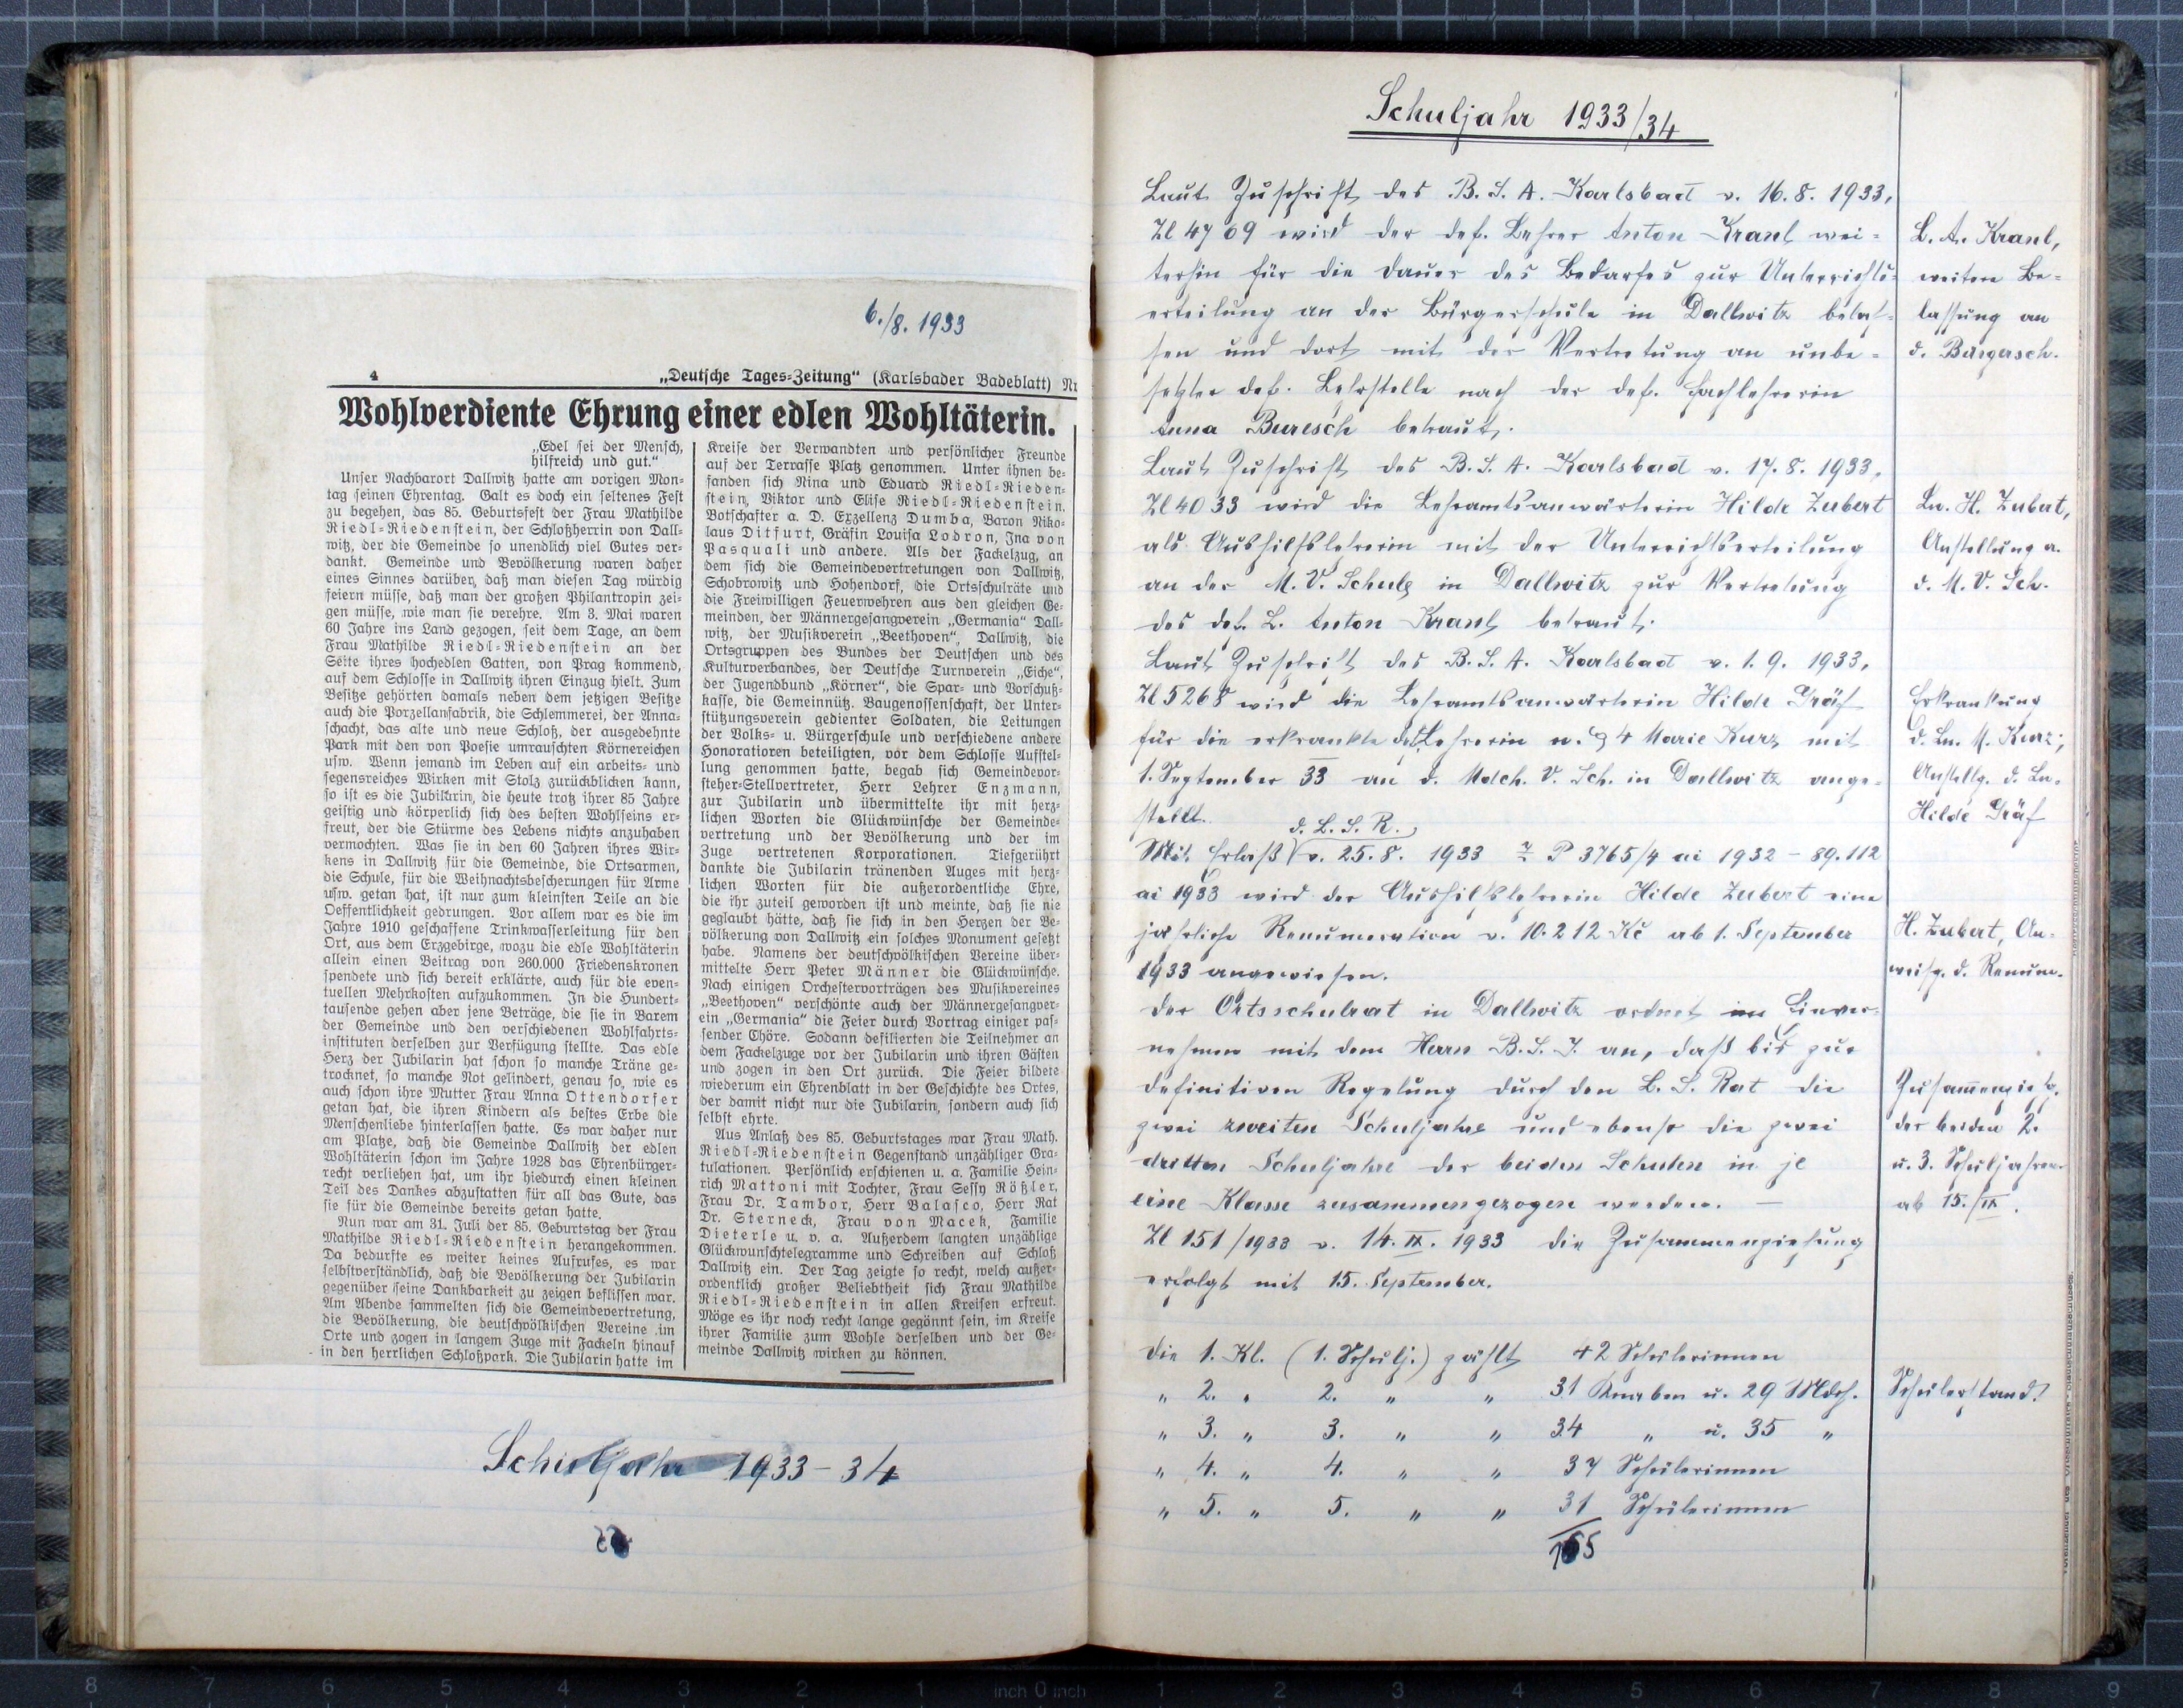 6./8. 1933
4 „Deutsche Tages-Zeitung“ (Karlsbader Badeblatt) Nr
Wohlverdiente Ehrung einer edlen Wohltäterin.
„Edel sei der Mensch,
hilfreich und gut.“
Unser Nachbarort Dallwitz hatte am vorigen Mon-
tag seinen Ehrentag. Galt es doch ein seltenes Fest
zu begehen, das 85. Geburtsfest der Frau Mathilde
Riedl-Riedenstein, der Schloßherrin von Dall-
witz, der die Gemeinde so unendlich viel Gutes ver-
dankt. Gemeinde und Bevölkerung waren daher
eines Sinnes darüber, daß man diesen Tag würdig
feiern müsse, daß man der großen Philantropin zei-
gen müsse, wie man sie verehre. Am 3. Mai waren
60 Jahre ins Land gezogen, seit dem Tage, an dem
Frau Mathilde Riedl-Riedenstein an der
Seite ihres hochedlen Gatten, von Prag kommend,
auf dem Schlosse in Dallwitz ihren Einzug hielt. Zum
Besitze gehörten damals neben dem jetzigen Besitze
auch die Porzellanfabrik, die Schlemmerei, der Anna-
schacht, das alte und neue Schloß, der ausgedehnte
Park mit den von Poesie umrauschten Körnereichen
usw. Wenn jemand im Leben auf ein arbeits- und
segensreiches Wirken mit Stolz zurückblicken kann,
so ist es die Jubilarin, die heute trotz ihrer 85 Jahre
geistig und körperlich sich des besten Wohlseins er-
freut, der die Stürme des Lebens nichts anzuhaben
vermochten. Was sie in den 60 Jahren ihres Wir-
kens in Dallwitz für die Gemeinde, die Ortsarmen,
die Schule, für die Weihnachtsbescherungen für Arme
usw. getan hat, ist nur zum kleinsten Teile an die
Oeffentlichkeit gedrungen. Vor allem war es die im
Jahre 1910 geschaffene Trinkwasserleitung für den
Ort, aus dem Erzgebirge, wozu die edle Wohltäterin
allein einen Beitrag von 260.000 Friedenskronen
spendete und sich bereit erklärte, auch für die even-
tuellen Mehrkosten aufzukommen. In die Hundert-
tausende gehen aber jene Beträge, die sie in Barem
der Gemeinde und den verschiedenen Wohlfahrts-
instituten derselben zur Verfügung stellte. Das edle
Herz der Jubilarin hat schon so manche Träne ge-
trocknet, so manche Not gelindert, genau so, wie es
auch schon ihre Mutter Frau Anna Ottendorfer
getan hat, die ihren Kindern als bestes Erbe die
Menschenliebe hinterlassen hatte. Es war daher nur
am Platze, daß die Gemeinde Dallwitz der edlen
Wohltäterin schon im Jahre 1928 das Ehrenbürger-
recht verliehen hat, um ihr hiedurch einen kleinen
Teil des Dankes abzustatten für all das Gute, das
sie für die Gemeinde bereits getan hatte.
Nun war am 31. Juli der 85. Geburtstag der Frau
Mathilde Riedl-Riedenstein herangekommen.
Da bedurfte es weiter keines Aufrufes, es war
selbstverständlich, daß die Bevölkerung der Jubilarin
gegenüber seine Dankbarkeit zu zeigen beflissen war.
Am Abende sammelten sich die Gemeindevertretung,
die Bevölkerung, die deutschvölkischen Vereine im
Orte und zogen in langem Zuge mit Fackeln hinauf
in den herrlichen Schloßpark. Die Jubilarin hatte im
Kreise der Verwandten und persönlicher Freunde
auf der Terrasse Platz genommen. Unter ihnen be-
fanden sich Nina und Eduard Riedl-Rieden-
stein, Viktor und Elise Riedl-Riedenstein,
Botschafter a. D. Exzellenz Dumba, Baron Niko-
laus Ditfurt, Gräfin Louisa Lodron, Ina von
Pasquali und andere. Als der Fackelzug, an
dem sich die Gemeindevertretungen von Dallwitz,
Schobrowitz und Hohendorf, die Ortsschulräte und
die Freiwilligen Feuerwehren aus den gleichen Ge-
meinden, der Männergesangverein „Germania“ Dall-
witz, der Musikverein „Beethoven“, Dallwitz, die
Ortsgruppen des Bundes der Deutschen und des
Kulturverbandes, der Deutsche Turnverein „Eiche“,
der Jugendbund „Körner“, die Spar- und Vorschuß-
kasse, die Gemeinnütz. Baugenossenschaft, der Unter-
stützungsverein gedienter Soldaten, die Leitungen
der Volks- u. Bürgerschule und verschiedene andere
Honoratioren beteiligten, vor dem Schlosse Aufstel-
lung genommen hatte, begab sich Gemeindevor-
steher-Stellvertreter, Herr Lehrer Enzmann,
zur Jubilarin und übermittelte ihr mit herz-
lichen Worten die Glückwünsche der Gemeinde-
vertretung und der Bevölkerung und der im
Zuge vertretenen Korporationen. Tiefgerührt
dankte die Jubilarin tränenden Auges mit herz-
lichen Worten für die außerordentliche Ehre,
die ihr zuteil geworden ist und meinte, daß sie nie
geglaubt hätte, daß sie sich in den Herzen der Be-
völkerung von Dallwitz ein solches Monument gesetzt
habe. Namens der deutschvölkischen Vereine über-
mittelte Herr Peter Männer die Glückwünsche.
Nach einigen Orchestervorträgen des Musikvereines
„Beethoven“ verschönte auch der Männergesangver-
ein „Germania“ die Feier durch Vortrag einiger pas-
sender Chöre. Sodann defilierten die Teilnehmer an
dem Fackelzuge vor der Jubilarin und ihren Gästen
und zogen in den Ort zurück. Die Feier bildete
wiederum ein Ehrenblatt in der Geschichte des Ortes,
der damit nicht nur die Jubilarin, sondern auch sich
selbst ehrte.
Aus Anlaß des 85. Geburtstages war Frau Math.
Riedl-Riedenstein Gegenstand unzähliger Gra-
tulationen. Persönlich erschienen u. a. Familie Hein-
rich Mattoni mit Tochter, Frau Sessy Rößler,
Frau Dr. Tambor, Herr Balasco, Herr Rat
Dr. Sterneck, Frau von Macek, Familie
Dieterle u. v. a. Außerdem langten unzählige
Glückwunschtelegramme und Schreiben auf Schloß
Dallwitz ein. Der Tag zeigte so recht, welch außer-
ordentlich großer Beliebtheit sich Frau Mathilde
Riedl-Riedenstein in allen Kreisen erfreut.
Möge es ihr noch recht lange gegönnt sein, im Kreise
ihrer Familie zum Wohle derselben und der Ge-
meinde Dallwitz wirken zu können.
Schuljahr 1933-34
Schuljahr 1933/34
Laut Zuschrift des B. S. A. Karlsbad v. 16. 8. 1933,
Zl 4769 wird der def. Lehrer Anton Kranl wei-
terhin für die Dauer des Bedarfes zur Unterrichts-
erteilung an der Bürgerschule in Dallwitz belas-
sen und dort mit der Vertretung an unbe-
setzter def. Lehrstelle nach der def. Fachlehrerin
Anna Buresch betraut.
Laut Zuschrift des B. S. A. Karlsbad v. 17. 8. 1933,
Zl 4033 wird die Lehramtsanwärterin Hilde Zubert
als Aushilfslehrerin mit der Unterrichtserteilung
an der M. V. Schule in Dallwitz zur Vertretung
des def. L. Anton Kranl betraut.
Laut Zuschrift des B. S. A. Karlsbad v. 1. 9. 1933,
Zl 5268 wird die Lehramtsanwärterin Hilde Gräf
für die erkrankte def. Lehrerin n. § 4 Marie Kurz mit
1. September 33 an d. Mdch. V. Sch. in Dallwitz ange-
stellt.
d. L. S. R.
Mit Erlaß v. 25. 8. 1933 P 3765/4 ai 1932 - 89.112
ai 1933 wird der Aushilfslehrerin Hilde Zubert eine
jährliche Renumeration v. 10.212 Kč ab 1. September
1933 angewiesen.
Der Ortsschulrat in Dallwitz ordnet im Einver-
nehmen mit dem Herrn B. S. I. an, daß bis zur
definitiven Regelung durch den L. S. Rat die
zwei zweiten Schuljahre und ebenso die zwei
dritten Schuljahre der beiden Schulen in je
eine Klasse zusammengezogen werden. —
Zl 151/1933 v. 14. IX. 1933 die Zusammenziehung
erfolgt mit 15. September.
Die 1. Kl. (1. Schulj.) zählt 42 Schülerinnen
„ 2. „ 2. „ „ 31 Knaben u. 29 Mdch.
„ 3. „ 3. „ „ 34 „ u. 35 „
„ 4. „ 4. „ „ 37 Schülerinnen
„ 5. „ 5. „ „ 31 Schülerinnen
L. A. Kranl,
weitere Be-
lassung an
d. Bürgersch.
Ln. H. Zubert,
Anstellung a.
d. M. V. Sch.
Erkrankung
d. Ln. M. Kurz;
Anstellg. d. Ln.
Hilde Gräf
H. Zubert, An-
weisg. d. Renum.
Zusammenziehg.
der beiden 2.
u. 3. Schuljahre
ab 15./IX.
Schülerstand!